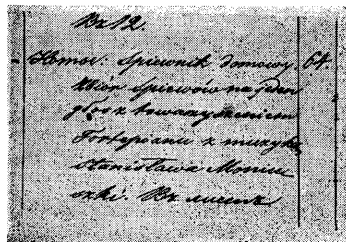 № 12.
Śpiewnik domowy. 64.
Zbiór śpiewów na jeden
głos z towarzyszeniem
Fortepianu z muzyką
Stanisława Moniu
szki.